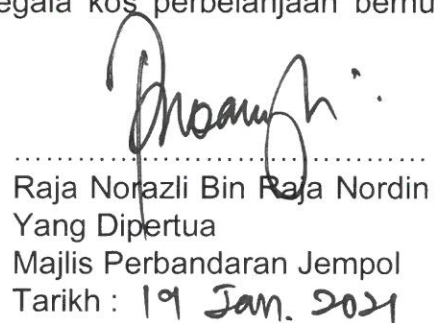 egala kos perbelanjaan bernu
Raja Norazli Bin Raja Nordin
Yang Dipertua
Majlis Perbandaran Jempol
Tarikh : 19 Jan. 2021